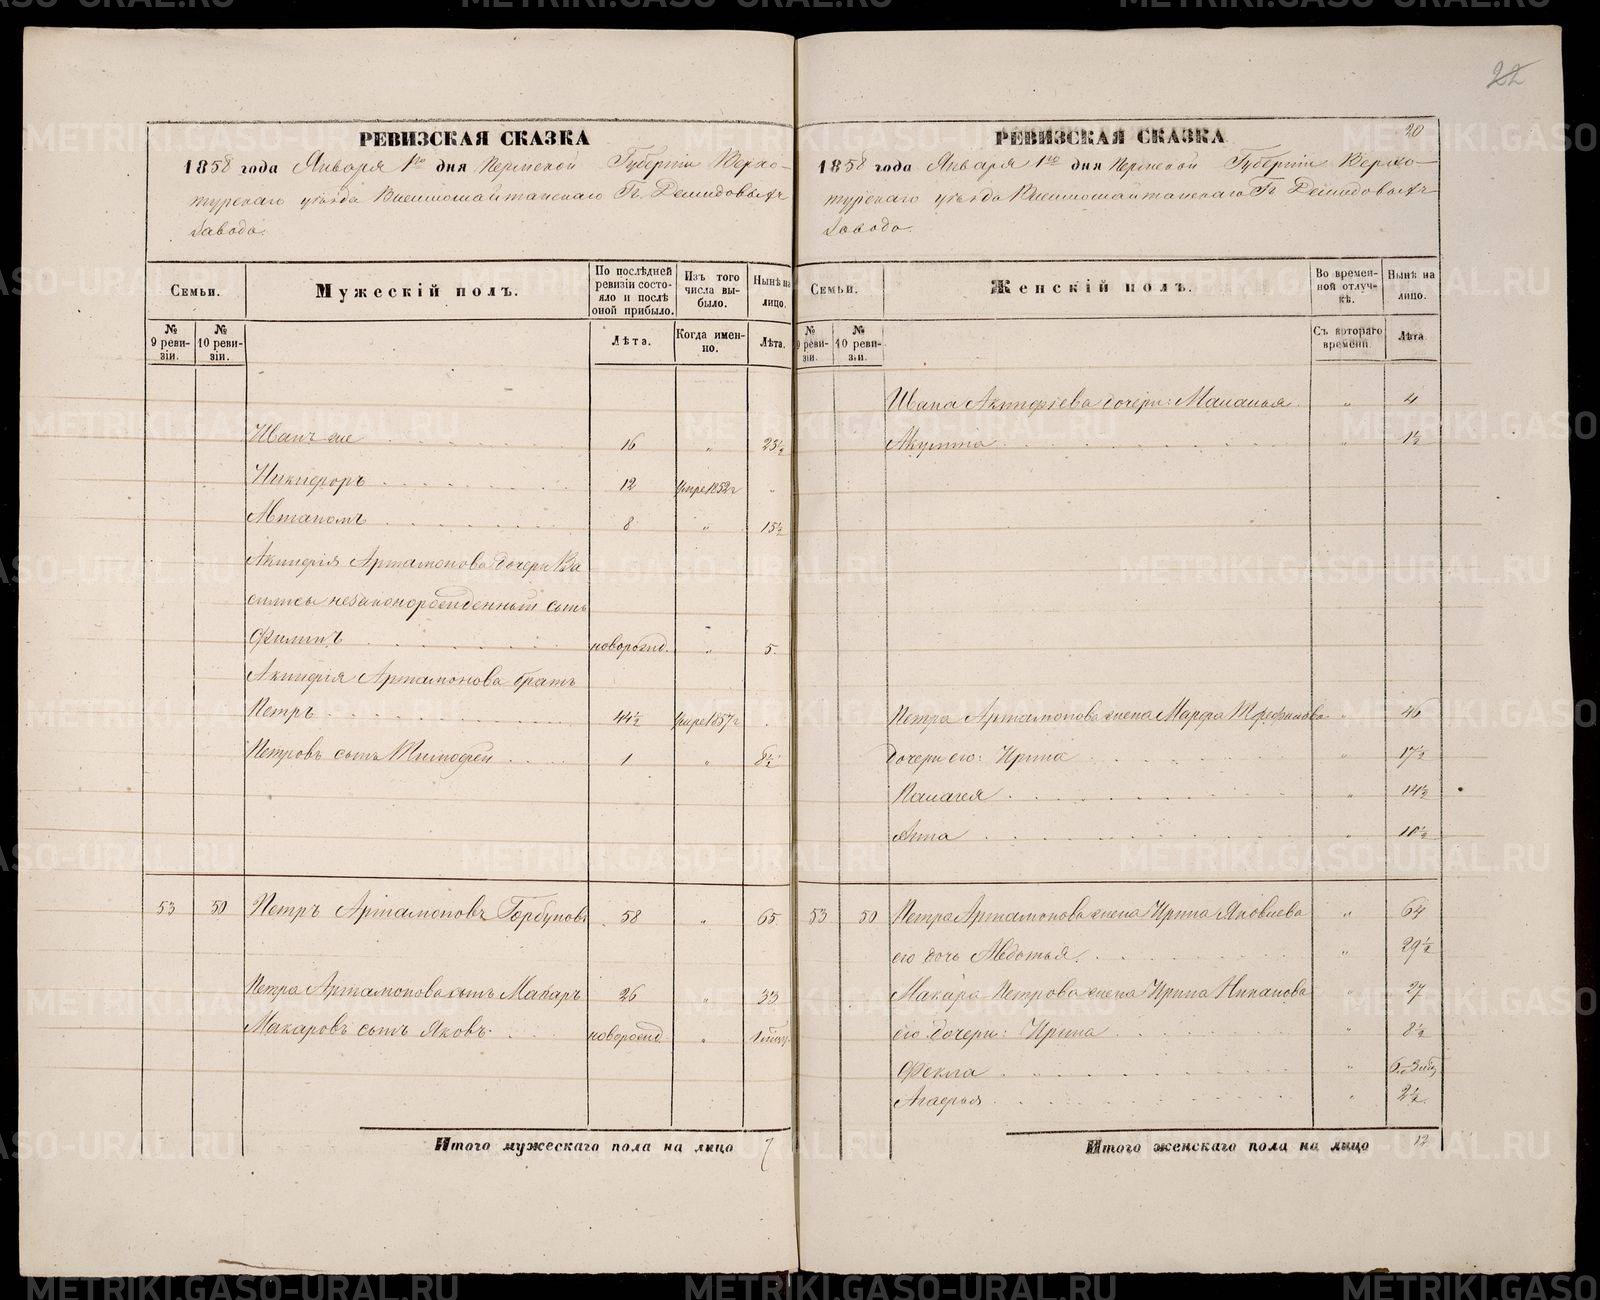 22
РЕВИЗСКАЯ СКАЗКА
1858 года Января 1го дня Пермской Губерніи Верхо-
турскаго уѣзда Висимошайтанскаго Гг. Демидовыхъ
завода.
Семьи.
Мужескій полъ.
По послѣдней ревизіи состояло и послѣ оной прибыло.
Изъ того числа выбыло.
Нынѣ на лицо.
№ 9 ревизіи.
№ 10 ревизіи.
Лѣта.
Когда именно.
Лѣта.
Иванъ же 16 " 23½
Никифоръ 12 умре 1852г "
Автаномъ 8 " 15½
Акинфія Артамонова дочери Ва
силисы незаконорожденный сынъ
Филипъ новорожд. " 5.
Акинфія Артамонова братъ
Петръ 44½ умре 1857г
Петровъ сынъ Тимофей 1 " 8½
53 50 Петръ Артамоновъ Горбуновъ 58 " 65
Петра Артамонова сынъ Макаръ 26 " 33
Макаровъ сынъ Яковъ новорожд. "
Итого мужескаго пола на лицо 7
20
РЕВИЗСКАЯ СКАЗКА
1858 года Января 1го дня Пермской Губерніи Верхо-
турскаго уѣзда Висимошайтанскаго Гг. Демидовыхъ
завода.
Семьи.
Женскій полъ.
Во временной отлучкѣ.
Нынѣ на лицо.
№ 9 ревизіи.
№ 10 ревизіи.
Съ котораго времени.
Лѣта.
Ивана Акинфіева дочери: Маланья " 4
Акулина " 1½
Петра Артамонова жена Марфа Трефилова " 46
дочери его: Ирина " 17½
Палагея " 14½
Анна " 10½
53 50 Петра Артамонова жена Ирина Яковлева " 64
его дочь Авдотья. " 29½
Макара Петрова жена Ирина " 27
его дочери: Ирина " 8½
Фекла "
Агафья " 2½
Итого женскаго пола на лицо 12
METRIKI.GASO-URAL.RU